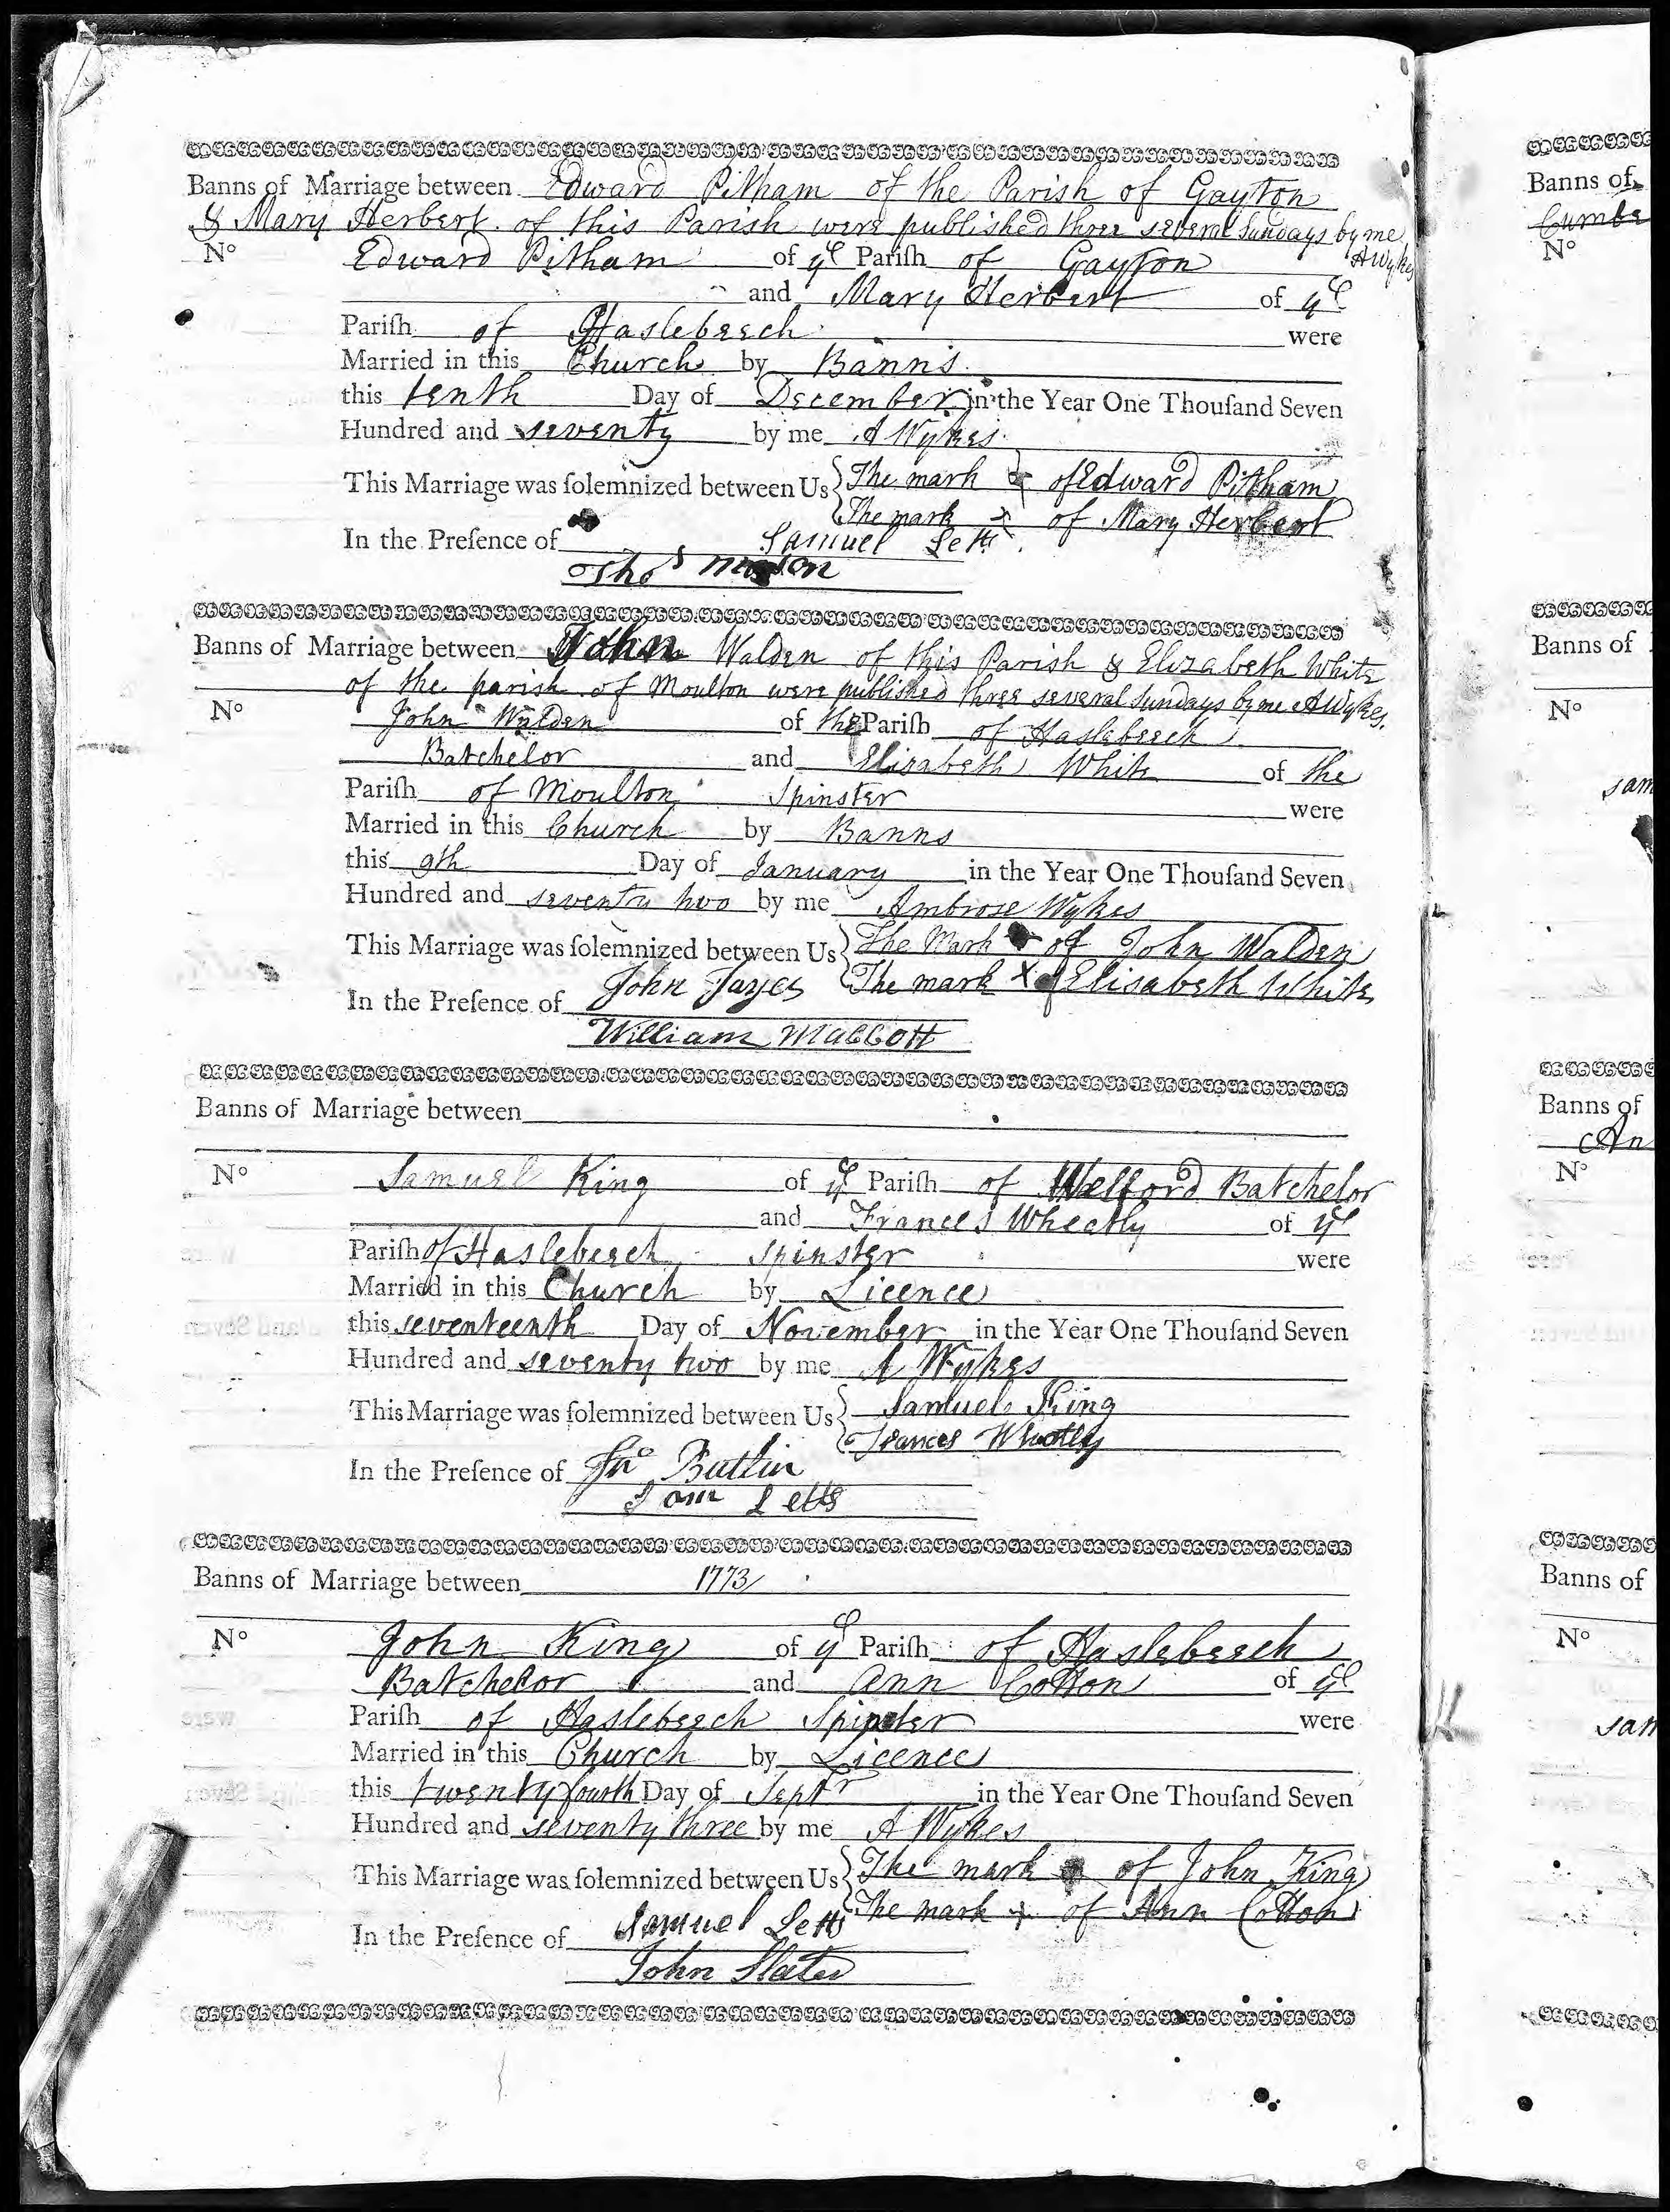 Banns of Marriage between Edward Pitham of the Parish of Gayton
& Mary Herbert of this Parish were published three several Sundays by me
A Wykes
No Edward Pitham of ye Pariſh of Gayton
and Mary Herbert of ye
Pariſh of Haslebeech were
Married in this Church by Banns
this tenth Day of December in the Year One Thouſand Seven
Hundred and seventy by me A Wykes
This Marriage was ſolemnized between Us The mark + of Edward Pitham
The mark + of Mary Herbert
In the Preſence of Samuel Letts
Thos Mason
Banns of Marriage between John Walden of this Parish & Elizabeth White
of the parish of Moulton were published three several Sundays by me A Wykes.
No John Walden of the Pariſh of Haslebeech
Batchelor and Elisabeth White of the
Pariſh of Moulton Spinster were
Married in this Church by Banns
this 9th Day of January in the Year One Thouſand Seven
Hundred and seventy two by me Ambrose Wykes
This Marriage was ſolemnized between Us The Mark of John Walden
The mark X of Elisabeth White
In the Preſence of John Jayes
William Mabbott
Banns of Marriage between
No Samuel King of ye Pariſh of Welford Batchelor
and Frances Wheatly of ye
Pariſh of Haslebeech Spinster were
Married in this Church by Licence
this seventeenth Day of November in the Year One Thouſand Seven
Hundred and seventy two by me A Wykes
This Marriage was ſolemnized between Us Samuel King
Frances Wheatly
In the Preſence of Jno Butlin
Sam Letts
Banns of Marriage between 1773
No John King of ye Pariſh of Haslebeech
Batchelor and Ann Cotton of ye
Pariſh of Haslebeech Spinster were
Married in this Church by Licence
this twenty fourth Day of Septr in the Year One Thouſand Seven
Hundred and seventy three by me A Wykes
This Marriage was ſolemnized between Us The mark + of John King
The mark + of Ann Cotton
In the Preſence of Samuel Letts
John Slater
Banns of
Cumbe
No
Banns of
No
sam
Banns of
An
No
Banns of
No
sam